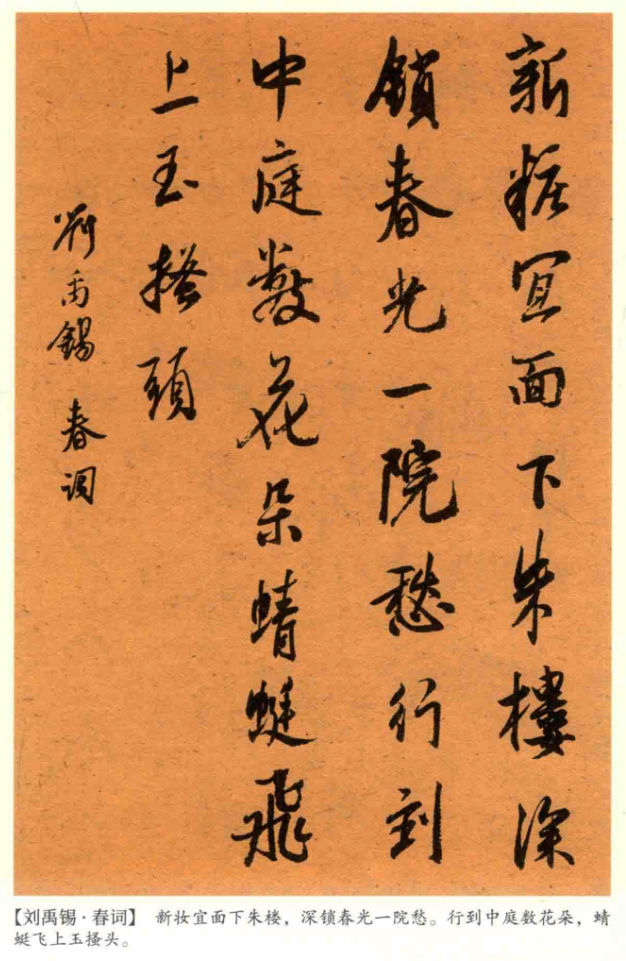 新粧宜面下朱樓深
鎖春光一院愁行到
中庭數花朵蜻蜓飛
上玉搔頭
劉禹錫 春词
【刘禹锡·春词】 新妆宜面下朱楼，深锁春光一院愁。行到中庭数花朵，蜻
蜓飞上玉搔头。